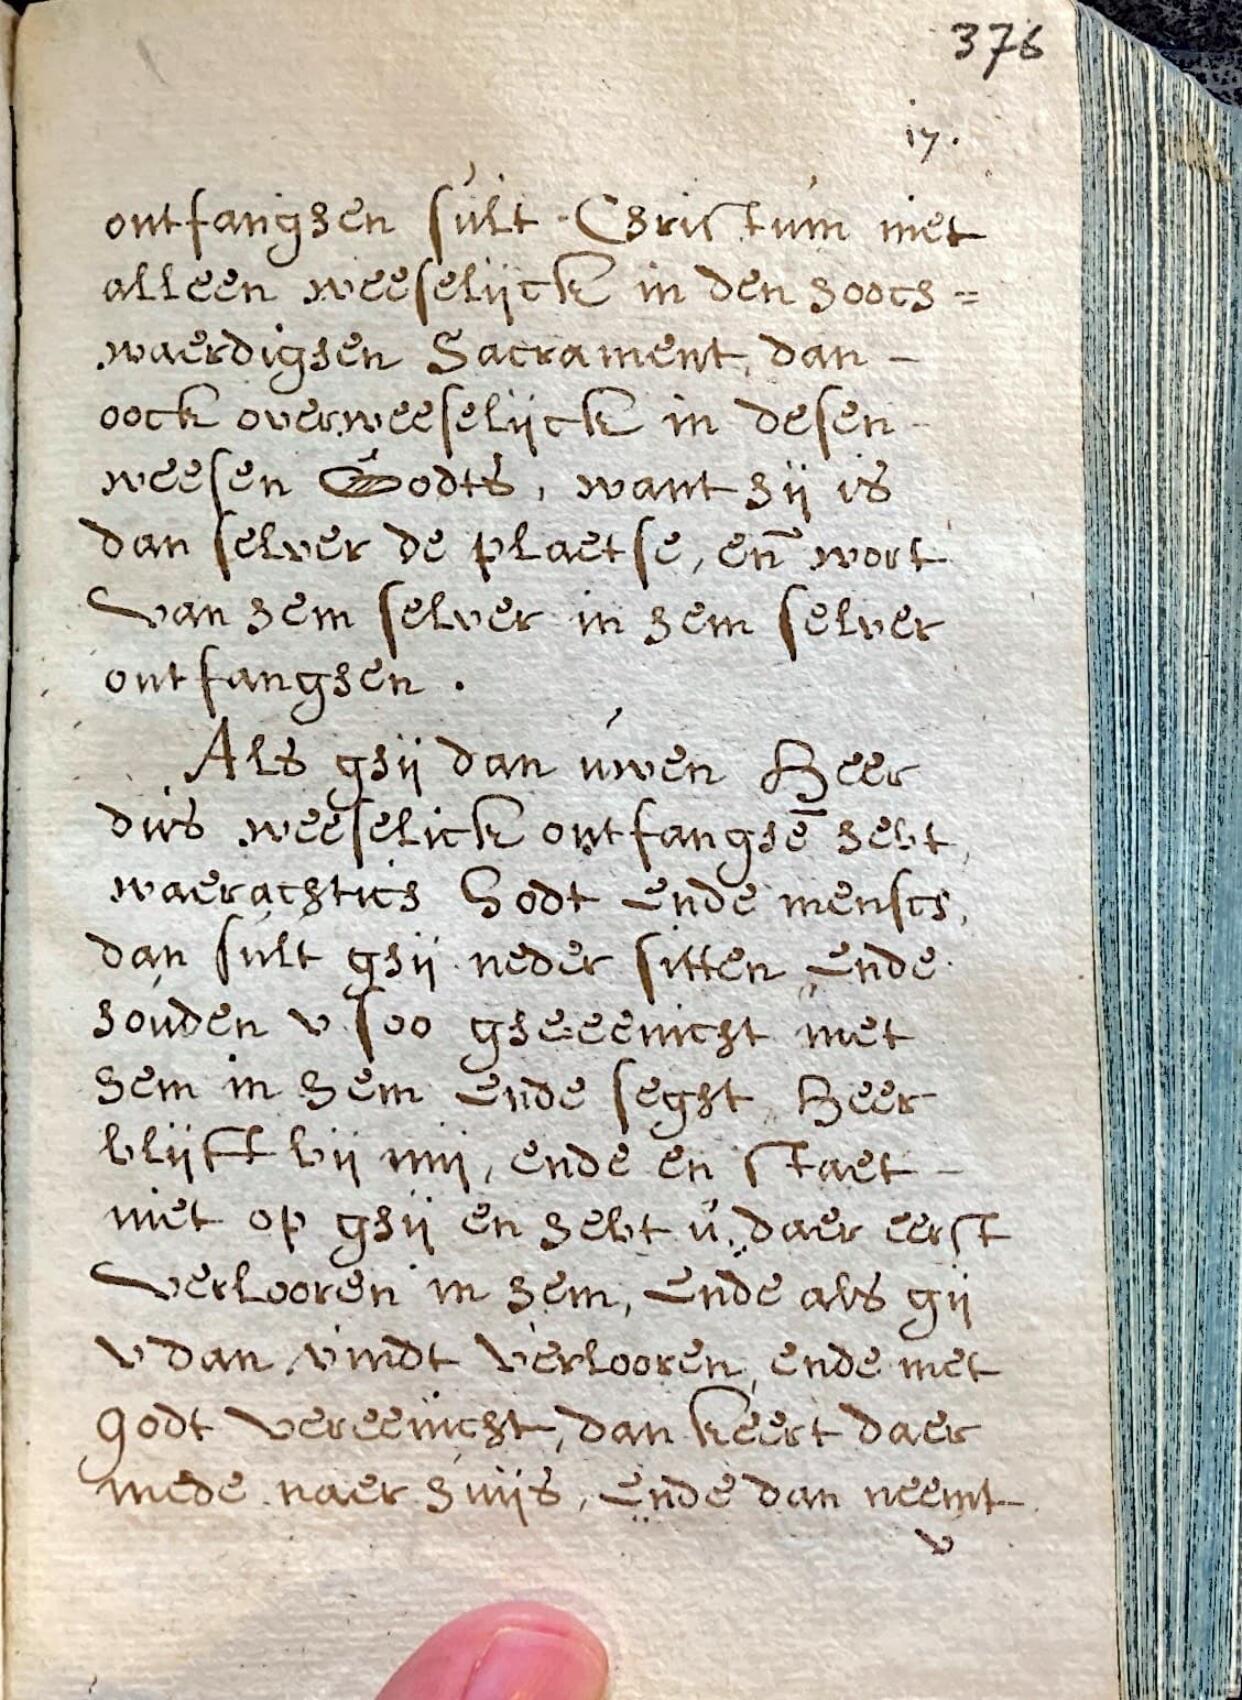 376
17.
ontfanghen sult Christum niet
alleen weeselijck in den hooch=
waerdighen Sacrament, dan –
oock overweeselijck in desen –
weesen Godts, want hij is
dan selver de plaetse, en̄ wort
van hem selver in hem selver
ontfanghen .
Als ghij dan uwen Heer
dus weeselick ontfanghē hebt,
waerachtich Godt Ende mensch,
dan sult ghij neder sitten Ende
houden v soo ghe=eenicht met
hem in hem Ende seght Heer
blijft bij mij, ende en staet –
niet op ghij en hebt u, daer eerst
verlooren in hem, Ende als gij
v dan vindt verlooren, ende met
godt vereenicht, dan keert daer
mede naer huijs, Ende dan neemt
v